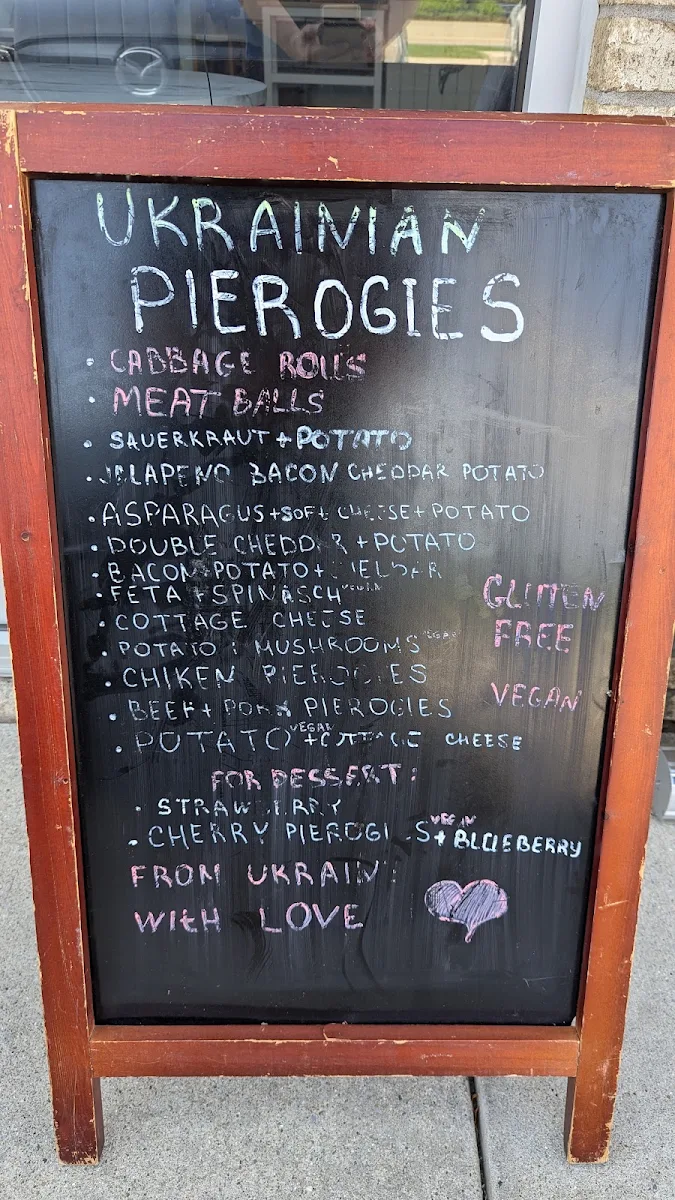 UKRAINIAN
PIEROGIES
• CABBAGE ROLLS
• MEAT BALLS
• SAUERKRAUT + POTATO
• JALAPENO BACON CHEDDAR POTATO
• ASPARAGUS + SOFT CHEESE + POTATO
• DOUBLE CHEDDAR + POTATO
• BACON POTATO +
• FETA + SPINASCH VEGAN
• COTTAGE CHEESE
• POTATO + MUSHROOMS VEGAN
• CHIKEN PIEROGIES
• BEEF + PORK PIEROGIES
• POTATO VEGAN + COTTAGE CHEESE
GLUTEN
FREE
VEGAN
FOR DESSERT:
• STRAWBERRY
• CHERRY PIEROGIES VEGAN + BLUEBERRY
FROM UKRAINE
WITH LOVE